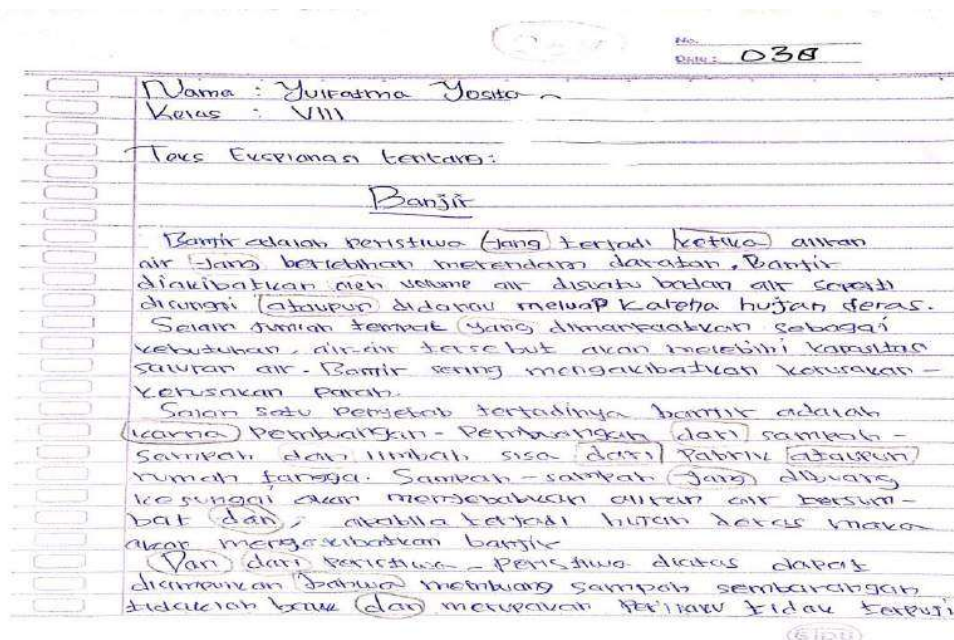 No.
Date: 038
Nama : Yulratma Yosita
Kelas : VIII
Teks Eksplanasi tentang:
Banjir
Banjir adalah peristiwa yang terjadi ketika aliran
air yang berlebihan merendam daratan. Banjir
diakibatkan oleh volume air disuatu badan air seperti
disungai ataupun didanau meluap karena hujan deras.
Selain jumlah tempat yang dimanfaatkan sebagai
kebutuhan, air-air tersebut akan melebihi kapasitas
saluran air. Banjir sering mengakibatkan kerusakan-
kerusakan parah.
Salah satu penyebab terjadinya banjir adalah
karna pembuangan-pembuangan dari sampah-
sampah dan limbah sisa dari pabrik ataupun
rumah tangga. Sampah-sampah yang dibuang
kesungai akan menyebabkan aliran air tersum-
bat dan, apabila terjadi hujan deras maka
akan mengakibatkan banjir
Dan dari peristiwa-peristiwa diatas dapat
bahwa membuang sampah sembarangan
tidaklah baik dan merupakan perilaku tidak terpuji